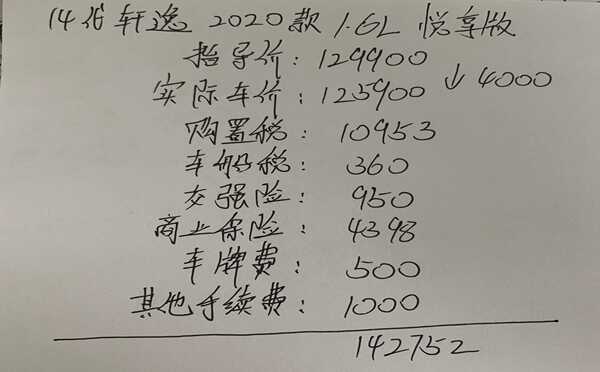 14代轩逸 2020款 1.6L 悦享版
指导价: 129900
↓4000
实际车价: 125900
购置税: 10953
车船税: 360
交强险: 950
商业保险: 4398
车牌费: 500
其他手续费: 1000
142752